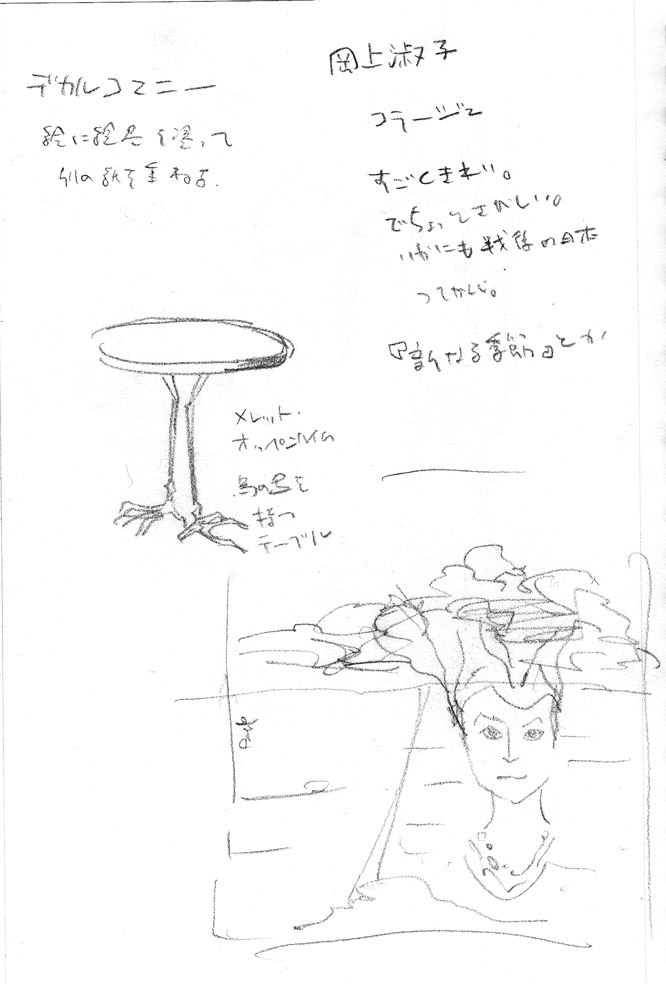 デカルコマニー
絵に絵具を塗って
別の紙を重ねる.
岡上淑子
コラージュ
すごくきれい。
でちょっとさびしい。
いかにも戦後の日本
ってかんじ。
『幻なる季節』とか
メレット・
オッペンハイム
鳥の足を
持つ
テーブル